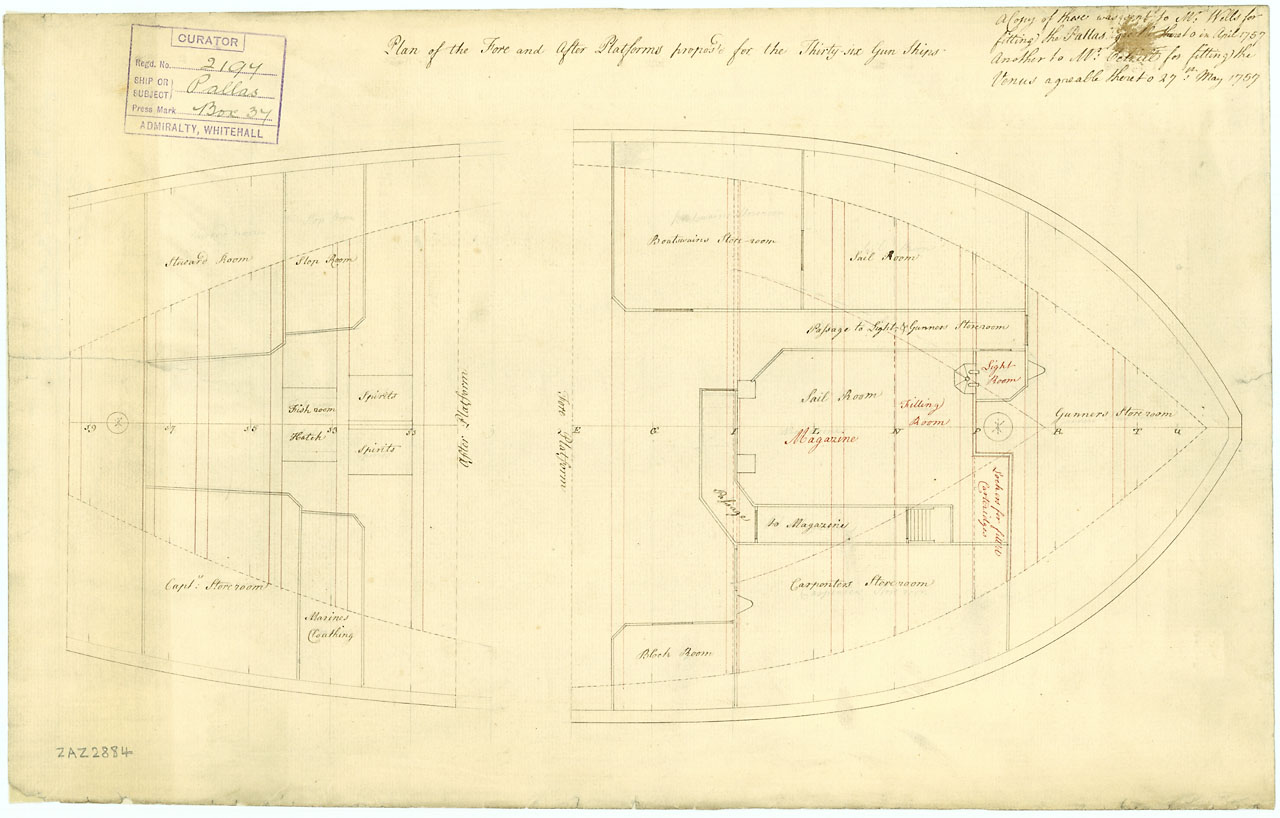 CURATOR
Regd. No. 2194
SHIP OR SUBJECT Pallas
Press Mark Box 34
ADMIRALTY, WHITEHALL
Plan of the Fore and After Platforms propos'd for the Thirty-six Gun Ships
A Copy of these was sent to Mr. Wells for
fitting the Pallas in April 1757
Another to Mr. for fitting the
Venus agreable thereto 27th May 1757
Steward Room
Slop Room
Boatswains Store-room
Sail Room
Passage to Light & Gunners Storeroom
Light-
Room
Sail Room
Filling
Room
Magazine
Gunners Storeroom
Fish room
Hatch
Spirits
Spirits
After Platform
Fore Platform
59
57
E
G
I
L
N
P
R
T
Passage
to Magazine
Lockers for fill'd
Cartridges
Carpenters Storeroom
Capts. Storeroom
Marines
Cloathing
Block Room
ZAZ2884